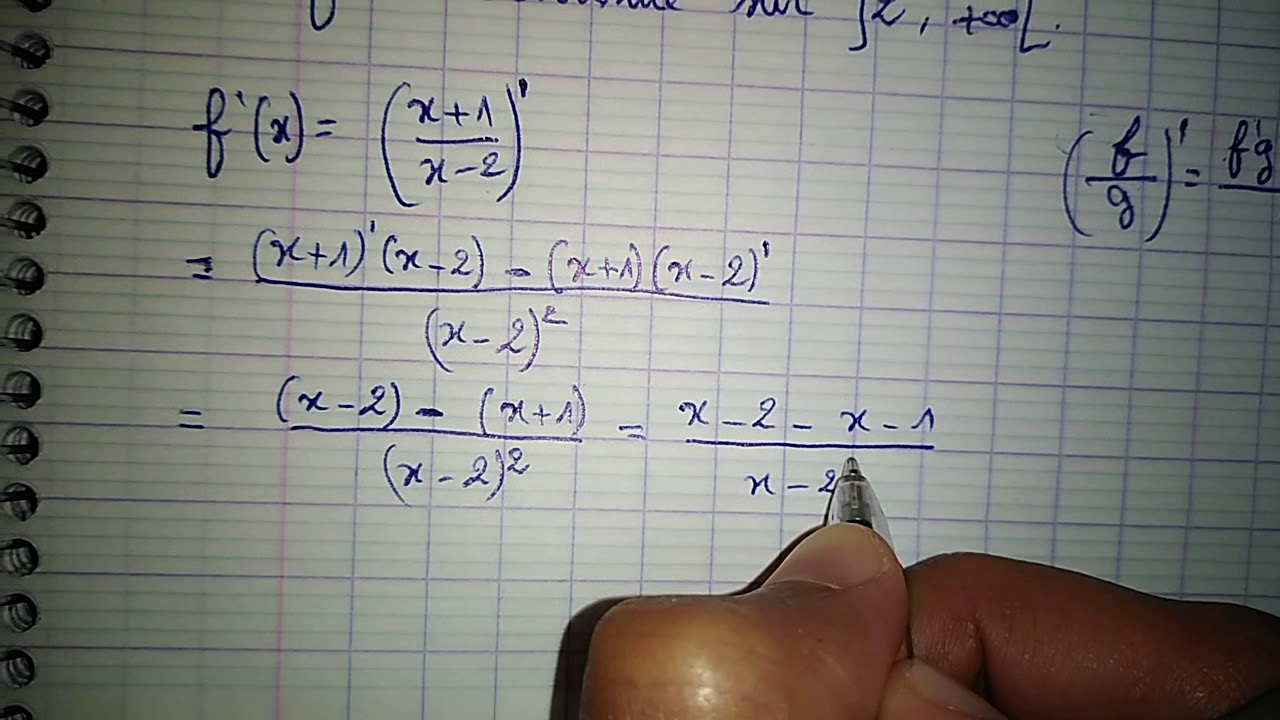 sur ]2, +∞[.
f'(x) = ((x+1)/(x-2))'
(f/g)' = f'g
= ((x+1)'(x-2) - (x+1)(x-2)')/(x-2)²
= ((x-2) - (x+1))/(x-2)² = (x-2-x-1)/(x-2